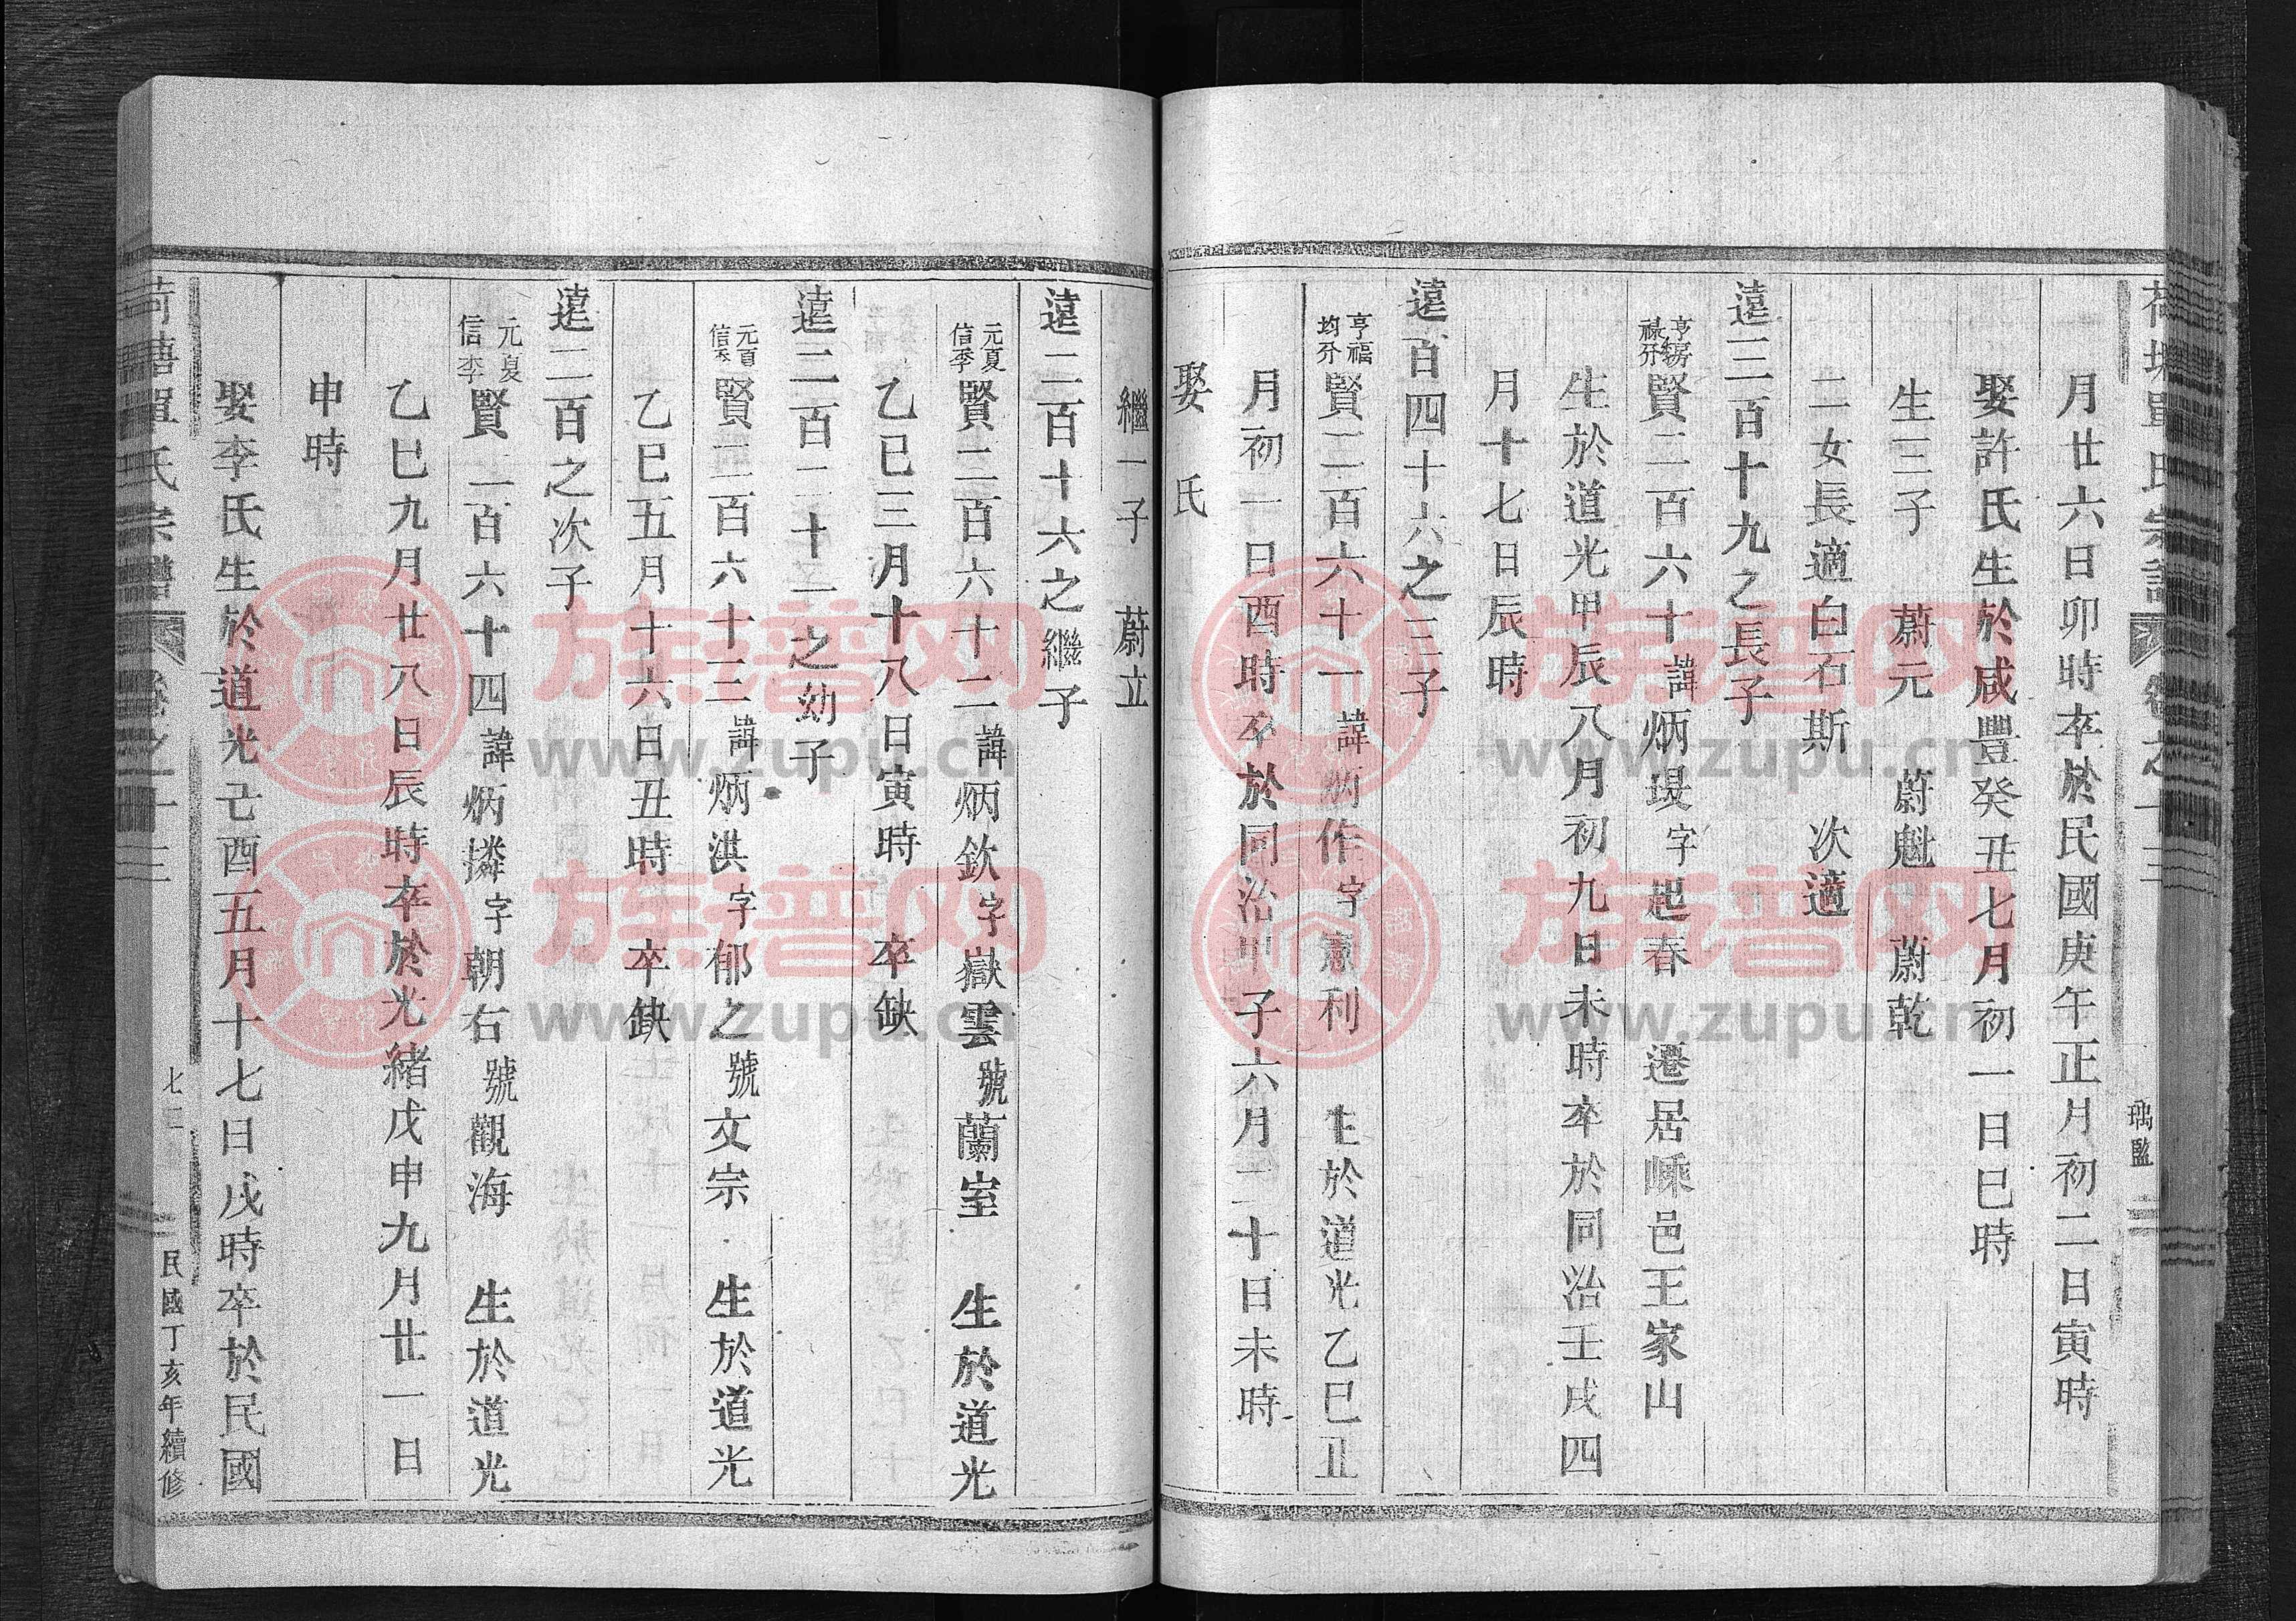 月廿六日卯時卒於民國庚午正月初二日寅時
娶許氏生於咸豐癸丑七月初一日巳時
生三子 蔚元 蔚魁 蔚乾
二女長適白石斯 次適
遠二百十九之長子
賢二百六十諱炳堤字起春 遷居嵊邑王家山
生於道光甲辰八月初九日未時卒於同治壬戌四
月十七日辰時
遠百四十六之三子
亨福
均分
賢二百六十一諱炳作字憲利 生於道光乙巳丑
月初一日酉時卒於同治甲子六月二十日未時
娶 氏
瑀監
繼一子 蔚立
遠二百十六之繼子
元夏
信季
賢二百六十二諱炳欽字嶽雲號蘭室 生於道光
乙巳三月十八日寅時 卒缺
遠二百二十一之幼子
元夏
信季
賢二百六十三諱炳洪字郁之號文宗 生於道光
乙巳五月十六日丑時 卒缺
遠二百之次子
元夏
信季
賢二百六十四諱炳燐字朝右號觀海 生於道光
乙巳九月廿八日辰時卒於光緒戊申九月廿一日
申時
娶李氏生於道光己酉五月十七日戌時卒於民國
荷塘單氏宗譜 卷之十三 民國丁亥年續修
族谱网
www.zupu.cn
族谱网
www.zupu.cn
族谱网
www.zupu.cn
族谱网
www.zupu.cn